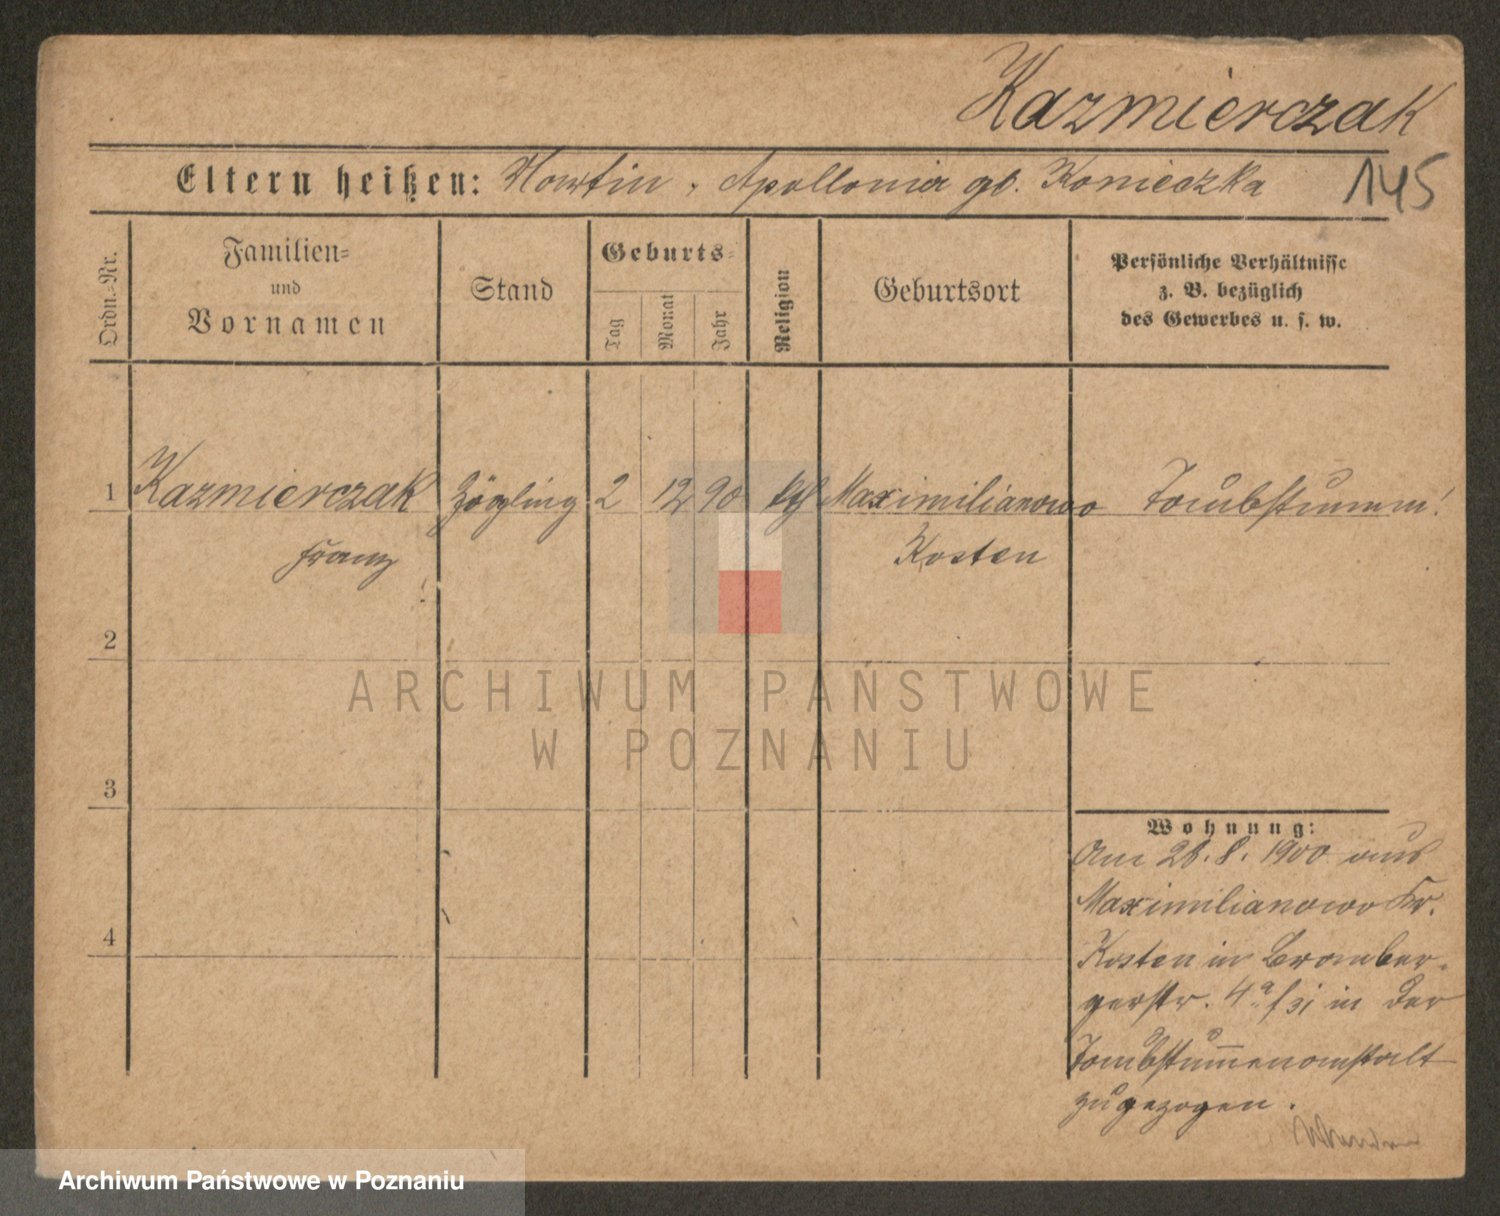 Kazmierczak
Eltern heißen: Martin, Apollonia gb. Konieczka
145
Ordn.-Nr.
Familien-
und
Vornamen
Stand
Geburts-
Tag
Monat
Jahr
Religion
Geburtsort
Persönliche Verhältnisse
z. B. bezüglich
des Gewerbes u. s. w.
1 Kazmierczak Zögling 2 12 90 kth Maximilianowo Taubstumm!
Franz Kosten
2
ARCHIWUM PAŃSTWOWE
W POZNANIU
3
4
Wohnung:
Am 28.8.1900 aus
Maximilianowo Kr.
Kosten in Bromber-
gerstr. 4a in der
Taubstummenanstalt
zugezogen.
Archiwum Państwowe w Poznaniu